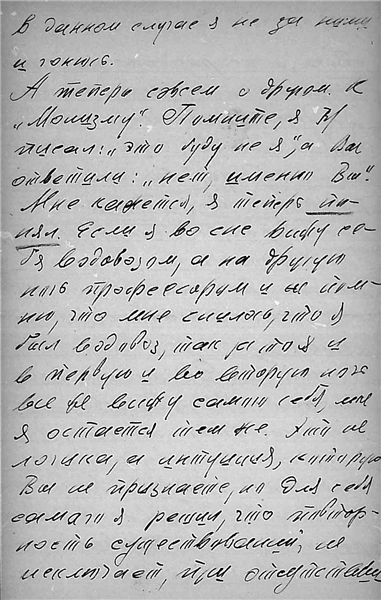 В данном случае я не за ними
и гонюсь.
А теперь совсем о другом. К
„Монизму". Помните, я Вам
писал: „это буду не я", а Вы
ответили: „нет, именно Вы".
Мне кажется, я теперь по-
нял. Если я во сне вижу се-
бя водовозом, а на другую
ночь профессором и не пом-
ню, что мне снилось, что я
был водовоз, так ведь я и
в первую и во вторую ночь
все же вижу самого себя, мое
я остается тем же. Это не
логика, а интуиция, которую
Вы не признаете, но для себя
самого я решил, что повтор-
ность существований, не
исключает, при отсутствии